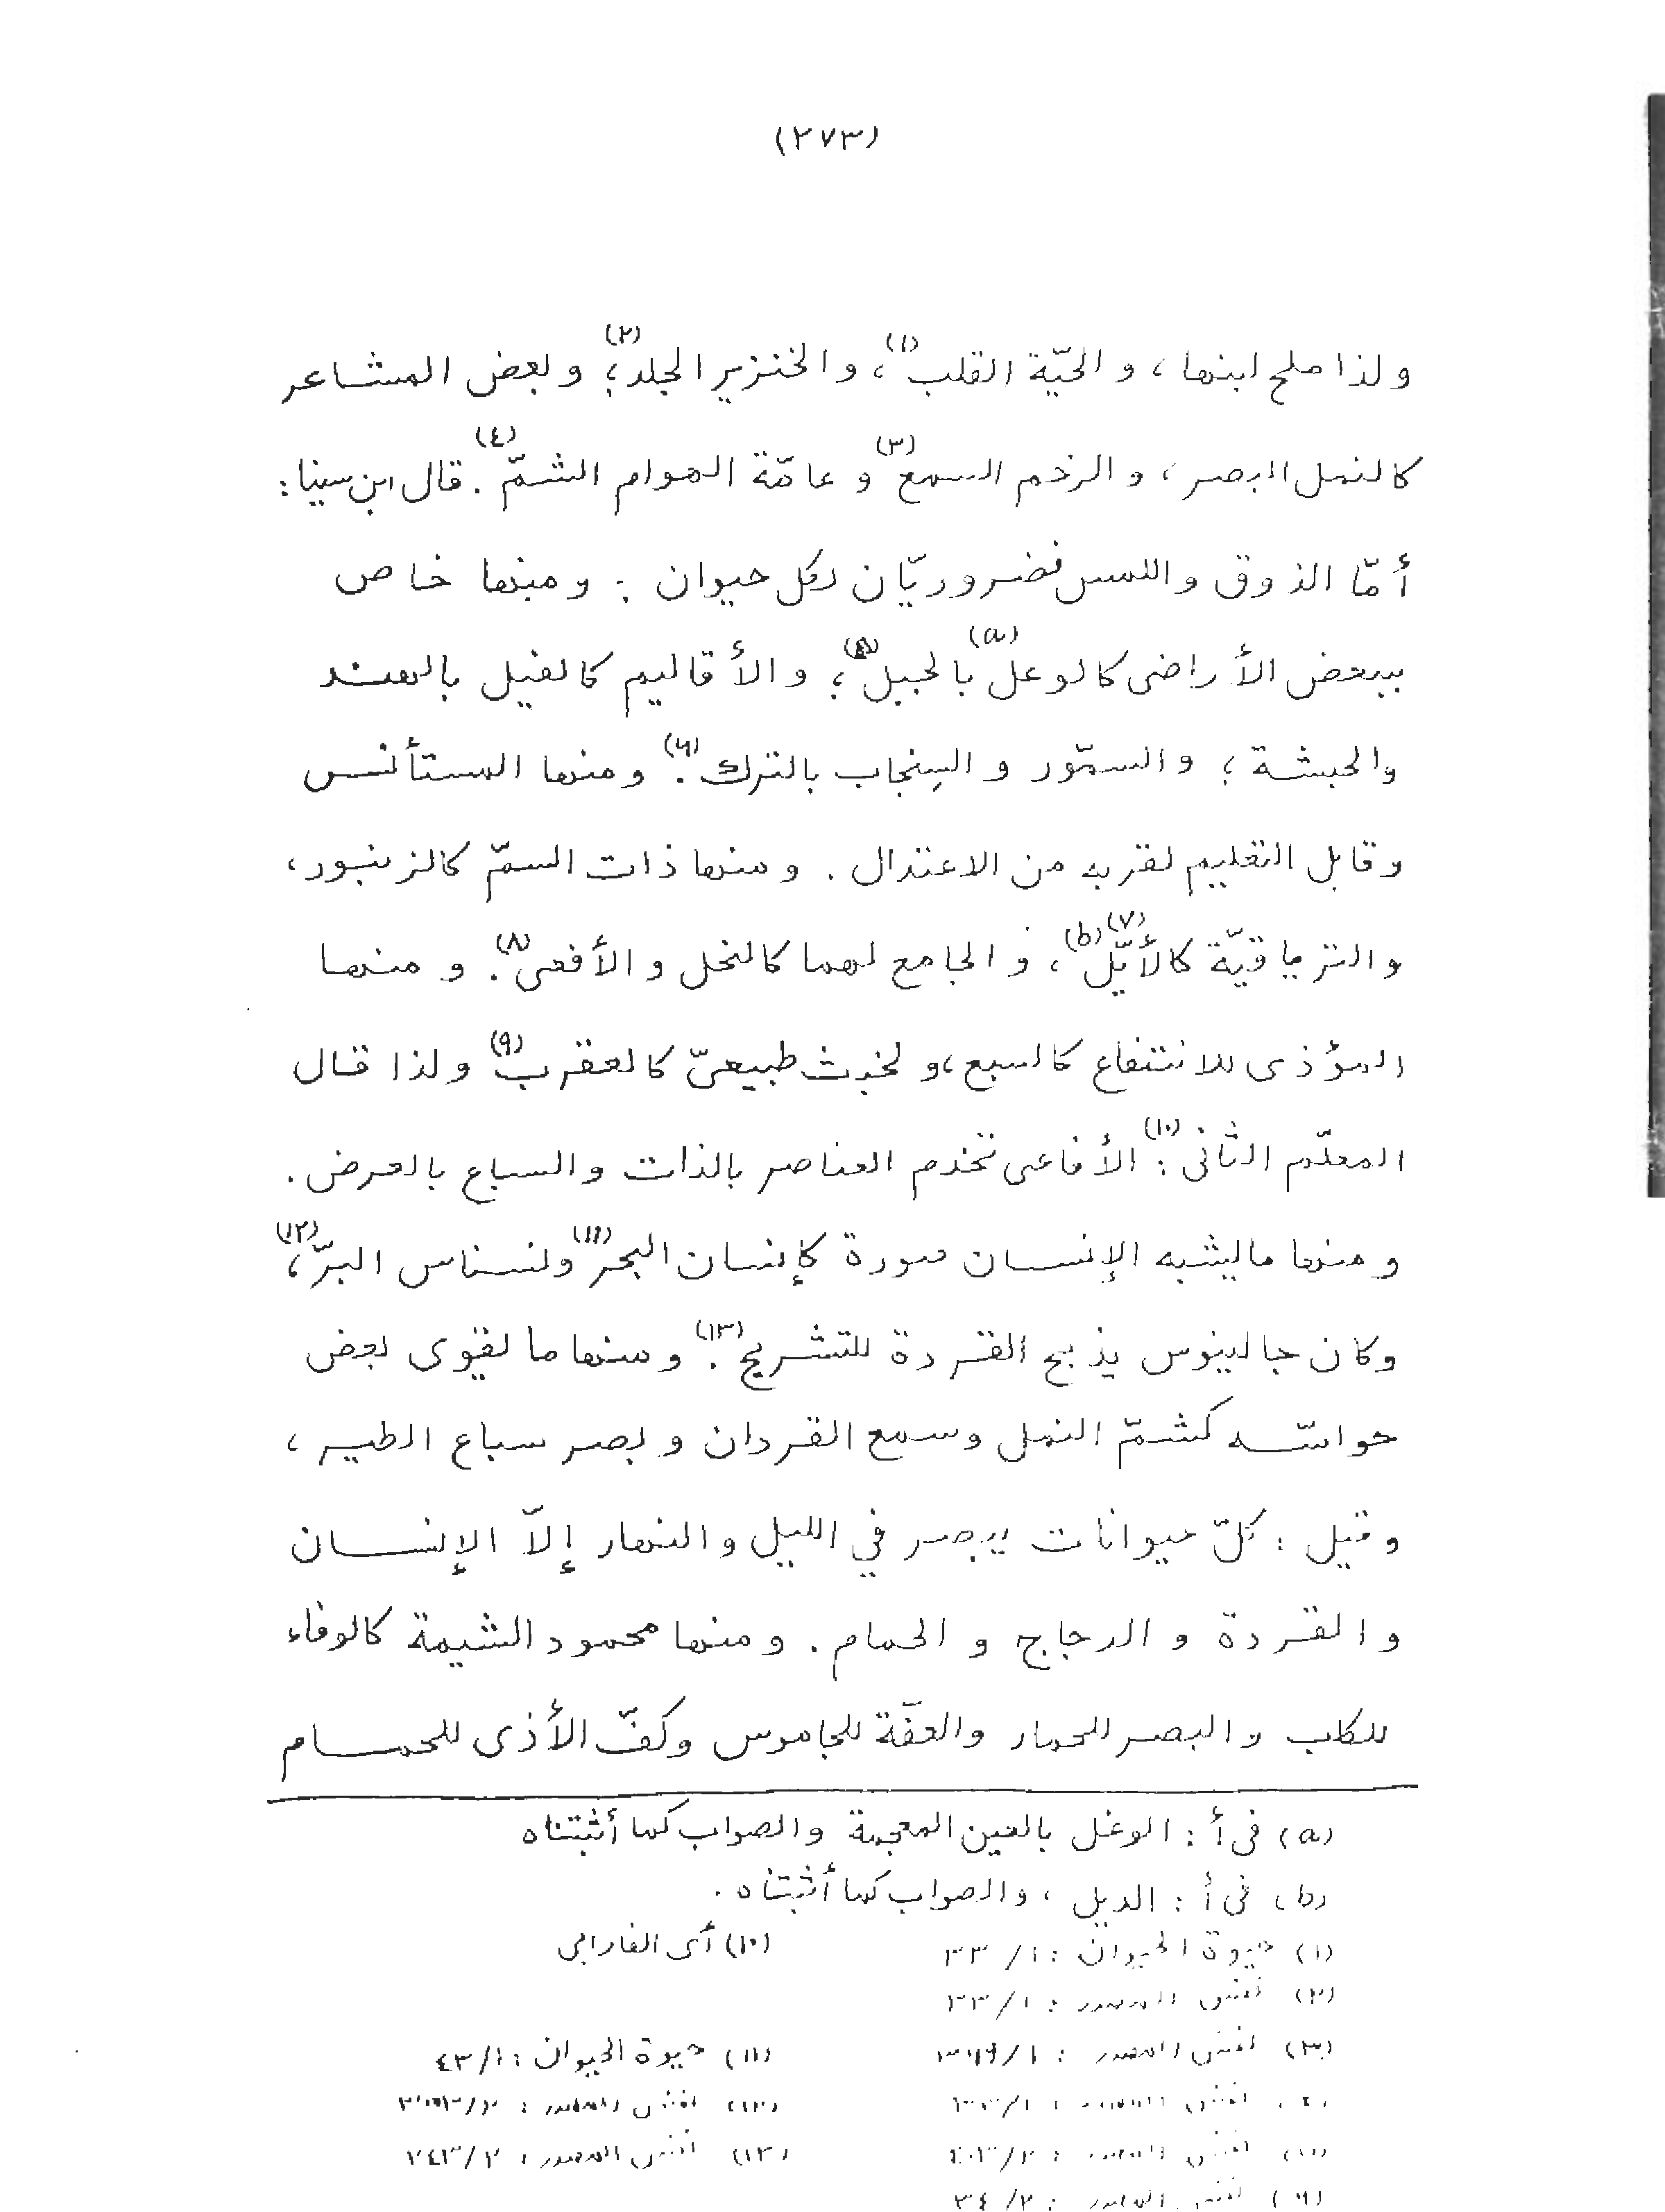 (٢٧٣)
ولذا ملح ابنها ، والحيّة القلب(١) ، والخنزير الجلد(٢) ؛ وبعض المشاعر
كالنمل البصر ، والرخم السمع(٣) وعامّة الهوام الشمّ(٤) . قال ابن سينا :
أمّا الذوق واللمس فضروريّان لكل حيوان : ومنها خاص
ببعض الأراضى كالوعل(a) بالجبل(٥) ؛ والأقاليم كالفيل بالهند
والحبشة ؛ والسمّور والسِنجاب بالترك(٦) . ومنها المستأنس
وقابل التعليم لقربه من الاعتدال . ومنها ذات السمّ كالزنبور ،
والترياقيّة كالأيّل(٧)(b) ، والجامع لهما كالنحل والأفعى(٨) . ومنها
المؤذى للانتفاع كالسبع ، ولخبث طبيعىّ كالعقرب(٩) ولذا قال
المعلّم الثانى(١٠) : الأفاعى تخدم العناصر بالذات والسباع بالعرض .
ومنها ما يشبه الإنسان صورة كإنسان البحر(١١) ونسناس البرّ(١٢) ،
وكان جالينوس يذبح القردة للتشريح(١٣) . ومنها ما يقوى بعض
حواسّه كشمّ النمل وسمع القردان وبصر سباع الطير ،
وقيل : كلّ حيوانات يبصر في الليل والنهار إلاّ الإنسان
والقردة والدجاج والحمام . ومنها محمود الشيمة كالوفاء
للكلب والبصر للحمار والعفّة للجاموس وكفّ الأذى للحمام
(a) فى أ : الوغل بالغين المعجمة والصواب كما أثبتناه
(b) فى أ : الديل ، والصواب كما أثبتناه .
(١) حيوة الحيوان : ١/ ٣٣
(١٠) أى الفارابى
(٢) نفس المصدر : ١/ ٣٣
(٣) نفس المصدر : ١/
(١١) حيوة الحيوان : ١/ ٤٣
نفس المصدر :
(١٢) نفس المصدر : ٢/
نفس المصدر :
(١٣) نفس المصدر : ٢/ ٢٤٣
(٦) نفس المصدر : ٢/ ٣٤